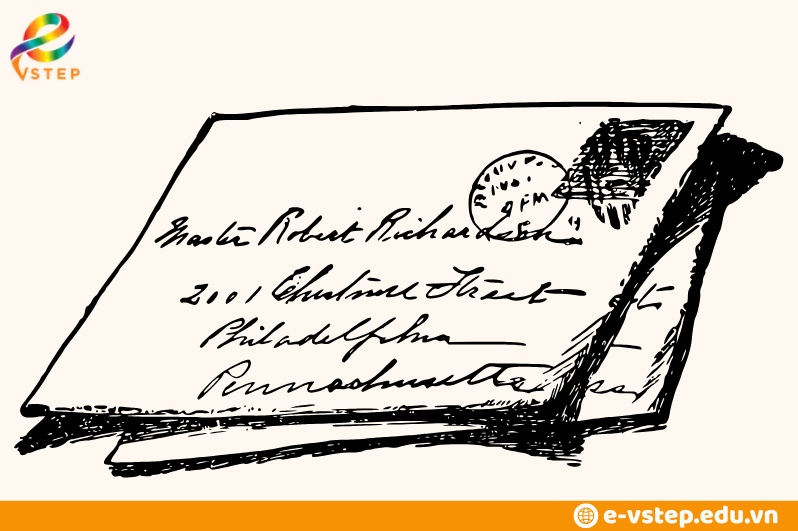 VSTEP
PM
Master Robert Richardson
2001 Chestnut Street
Philadelphia
Pennachusetts
e-vstep.edu.vn